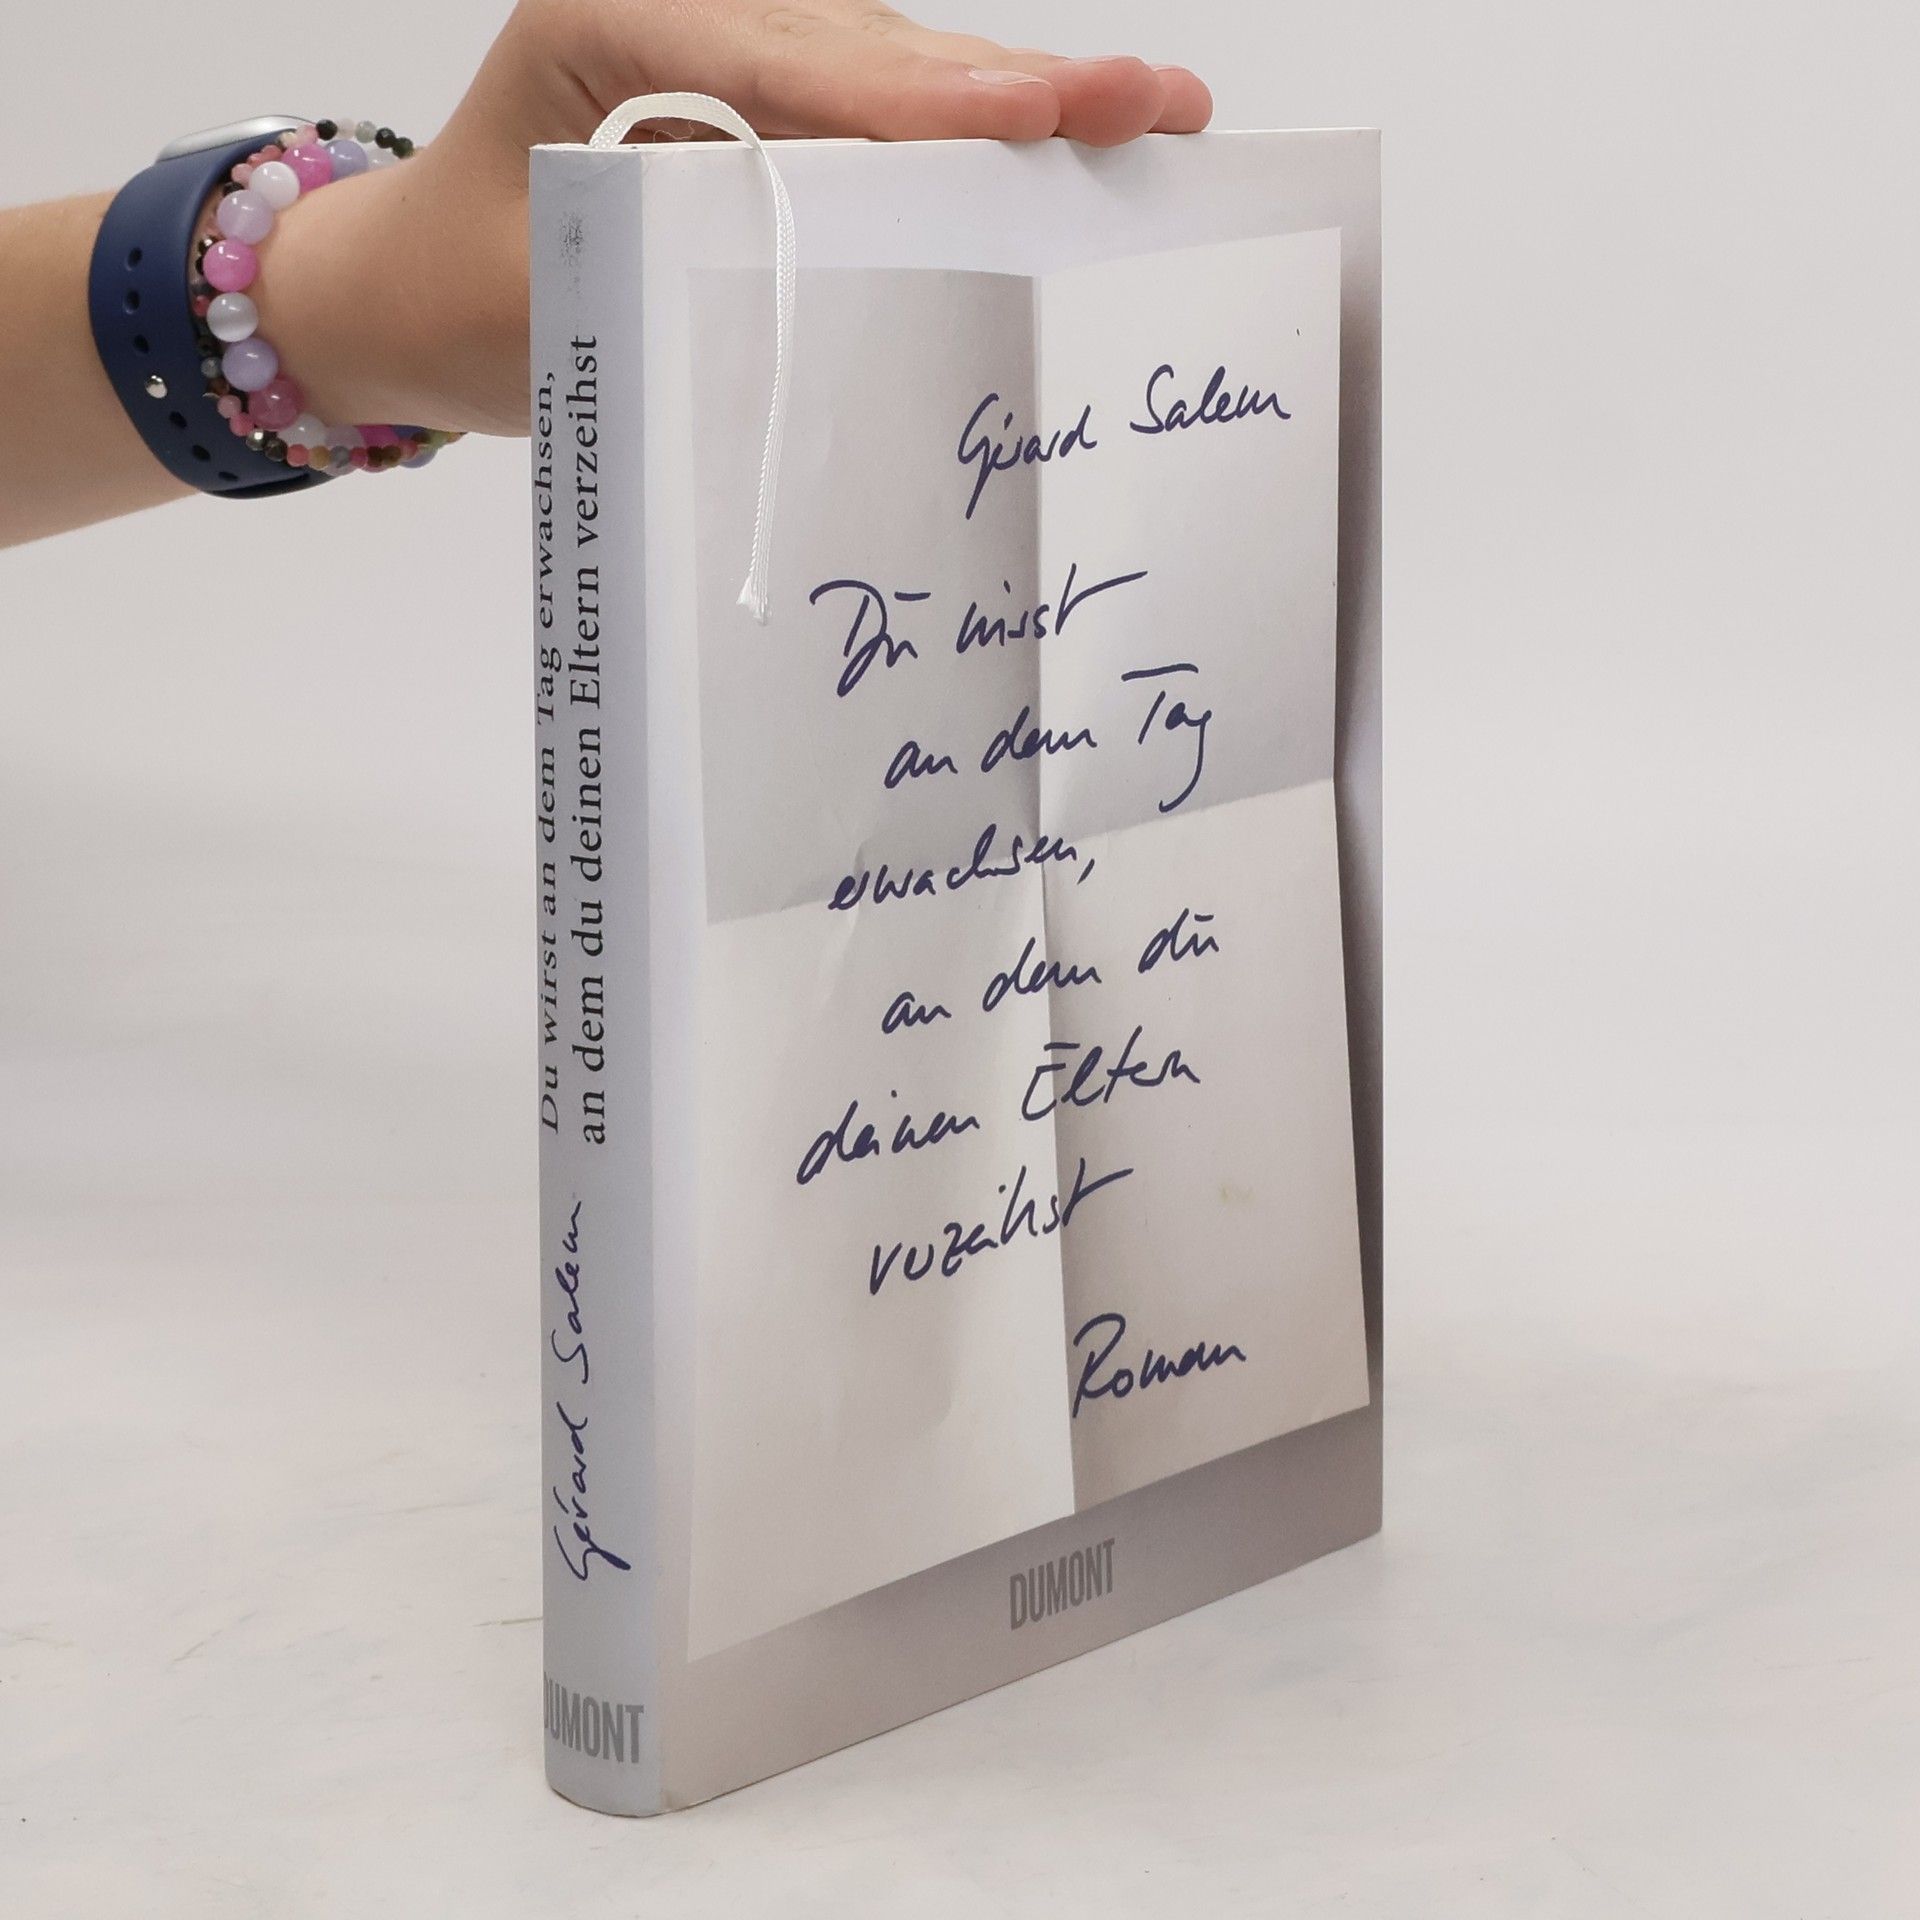 Du wirst an dem Tag erwachsen,
an dem du deinen Eltern verzeihst
Gérard Salem
DUMONT
Gérard Salem
Du wirst
an dem Tag
erwachsen,
an dem du
deinen Eltern
verzeihst
Roman
DUMONT